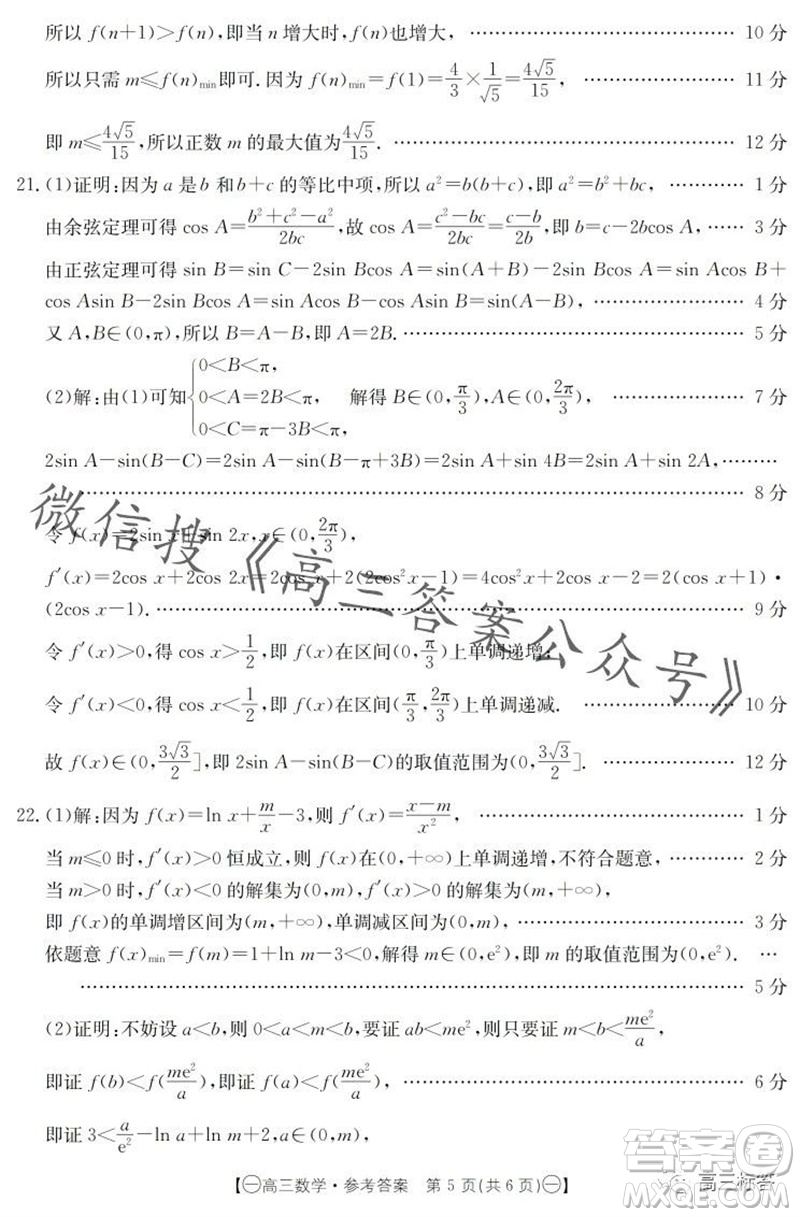 所以 f(n+1)>f(n),即当 n 增大时,f(n)也增大, …… 10 分
所以只需 m≤f(n)min即可.因为 f(n)min=f(1)=4/3×1/√5=4√5/15, …… 11 分
即 m≤4√5/15,所以正数 m 的最大值为4√5/15. …… 12 分
21.(1)证明:因为 a 是 b 和 b+c 的等比中项,所以 a²=b(b+c),即 a²=b²+bc, …… 1 分
由余弦定理可得 cos A=(b²+c²-a²)/2bc,故 cos A=(c²-bc)/2bc=(c-b)/2b,即 b=c-2bcos A. …… 3 分
由正弦定理可得 sin B=sin C-2sin Bcos A=sin(A+B)-2sin Bcos A=sin Acos B+
cos Asin B-2sin Bcos A=sin Acos B-cos Asin B=sin(A-B), …… 4 分
又 A,B∈(0,π),所以 B=A-B,即 A=2B. …… 5 分
(2)解:由(1)可知{0<B<π, 0<A=2B<π, 0<C=π-3B<π, 解得 B∈(0,π/3),A∈(0,2π/3), …… 7 分
2sin A-sin(B-C)=2sin A-sin(B-π+3B)=2sin A+sin 4B=2sin A+sin 2A, ……
…… 8 分
令 f(x)=2sin x+sin 2x,x∈(0,2π/3),
f′(x)=2cos x+2cos 2x=2cos x+2(2cos²x-1)=4cos²x+2cos x-2=2(cos x+1)·
(2cos x-1). …… 9 分
令 f′(x)>0,得 cos x>1/2,即 f(x)在区间(0,π/3)上单调递增;
令 f′(x)<0,得 cos x<1/2,即 f(x)在区间(π/3,2π/3)上单调递减. …… 10 分
故 f(x)∈(0,3√3/2],即 2sin A-sin(B-C)的取值范围为(0,3√3/2]. …… 12 分
22.(1)解:因为 f(x)=ln x+m/x-3,则 f′(x)=(x-m)/x², …… 1 分
当 m≤0 时,f′(x)>0 恒成立,f(x)在(0,+∞)上单调递增,不符合题意, …… 2 分
当 m>0 时,f′(x)<0 的解集为(0,m),f′(x)>0 的解集为(m,+∞),
即 f(x)的单调增区间为(m,+∞),单调减区间为(0,m), …… 3 分
依题意 f(x)min=f(m)=1+ln m-3<0,解得 m∈(0,e²),即 m 的取值范围为(0,e²). …
…… 5 分
(2)证明:不妨设 a<b,则 0<a<m<b,要证 ab<me²,则只要证 m<b<me²/a,
即证 f(b)<f(me²/a),即证 f(a)<f(me²/a), …… 6 分
即证 3<a/e²-ln a+ln m+2-m/a,
【㊀高三数学·参考答案 第 5 页(共 6 页)㊀】
微信搜《高三答案公众号》
答案圈
高三标答
MXQE.COM